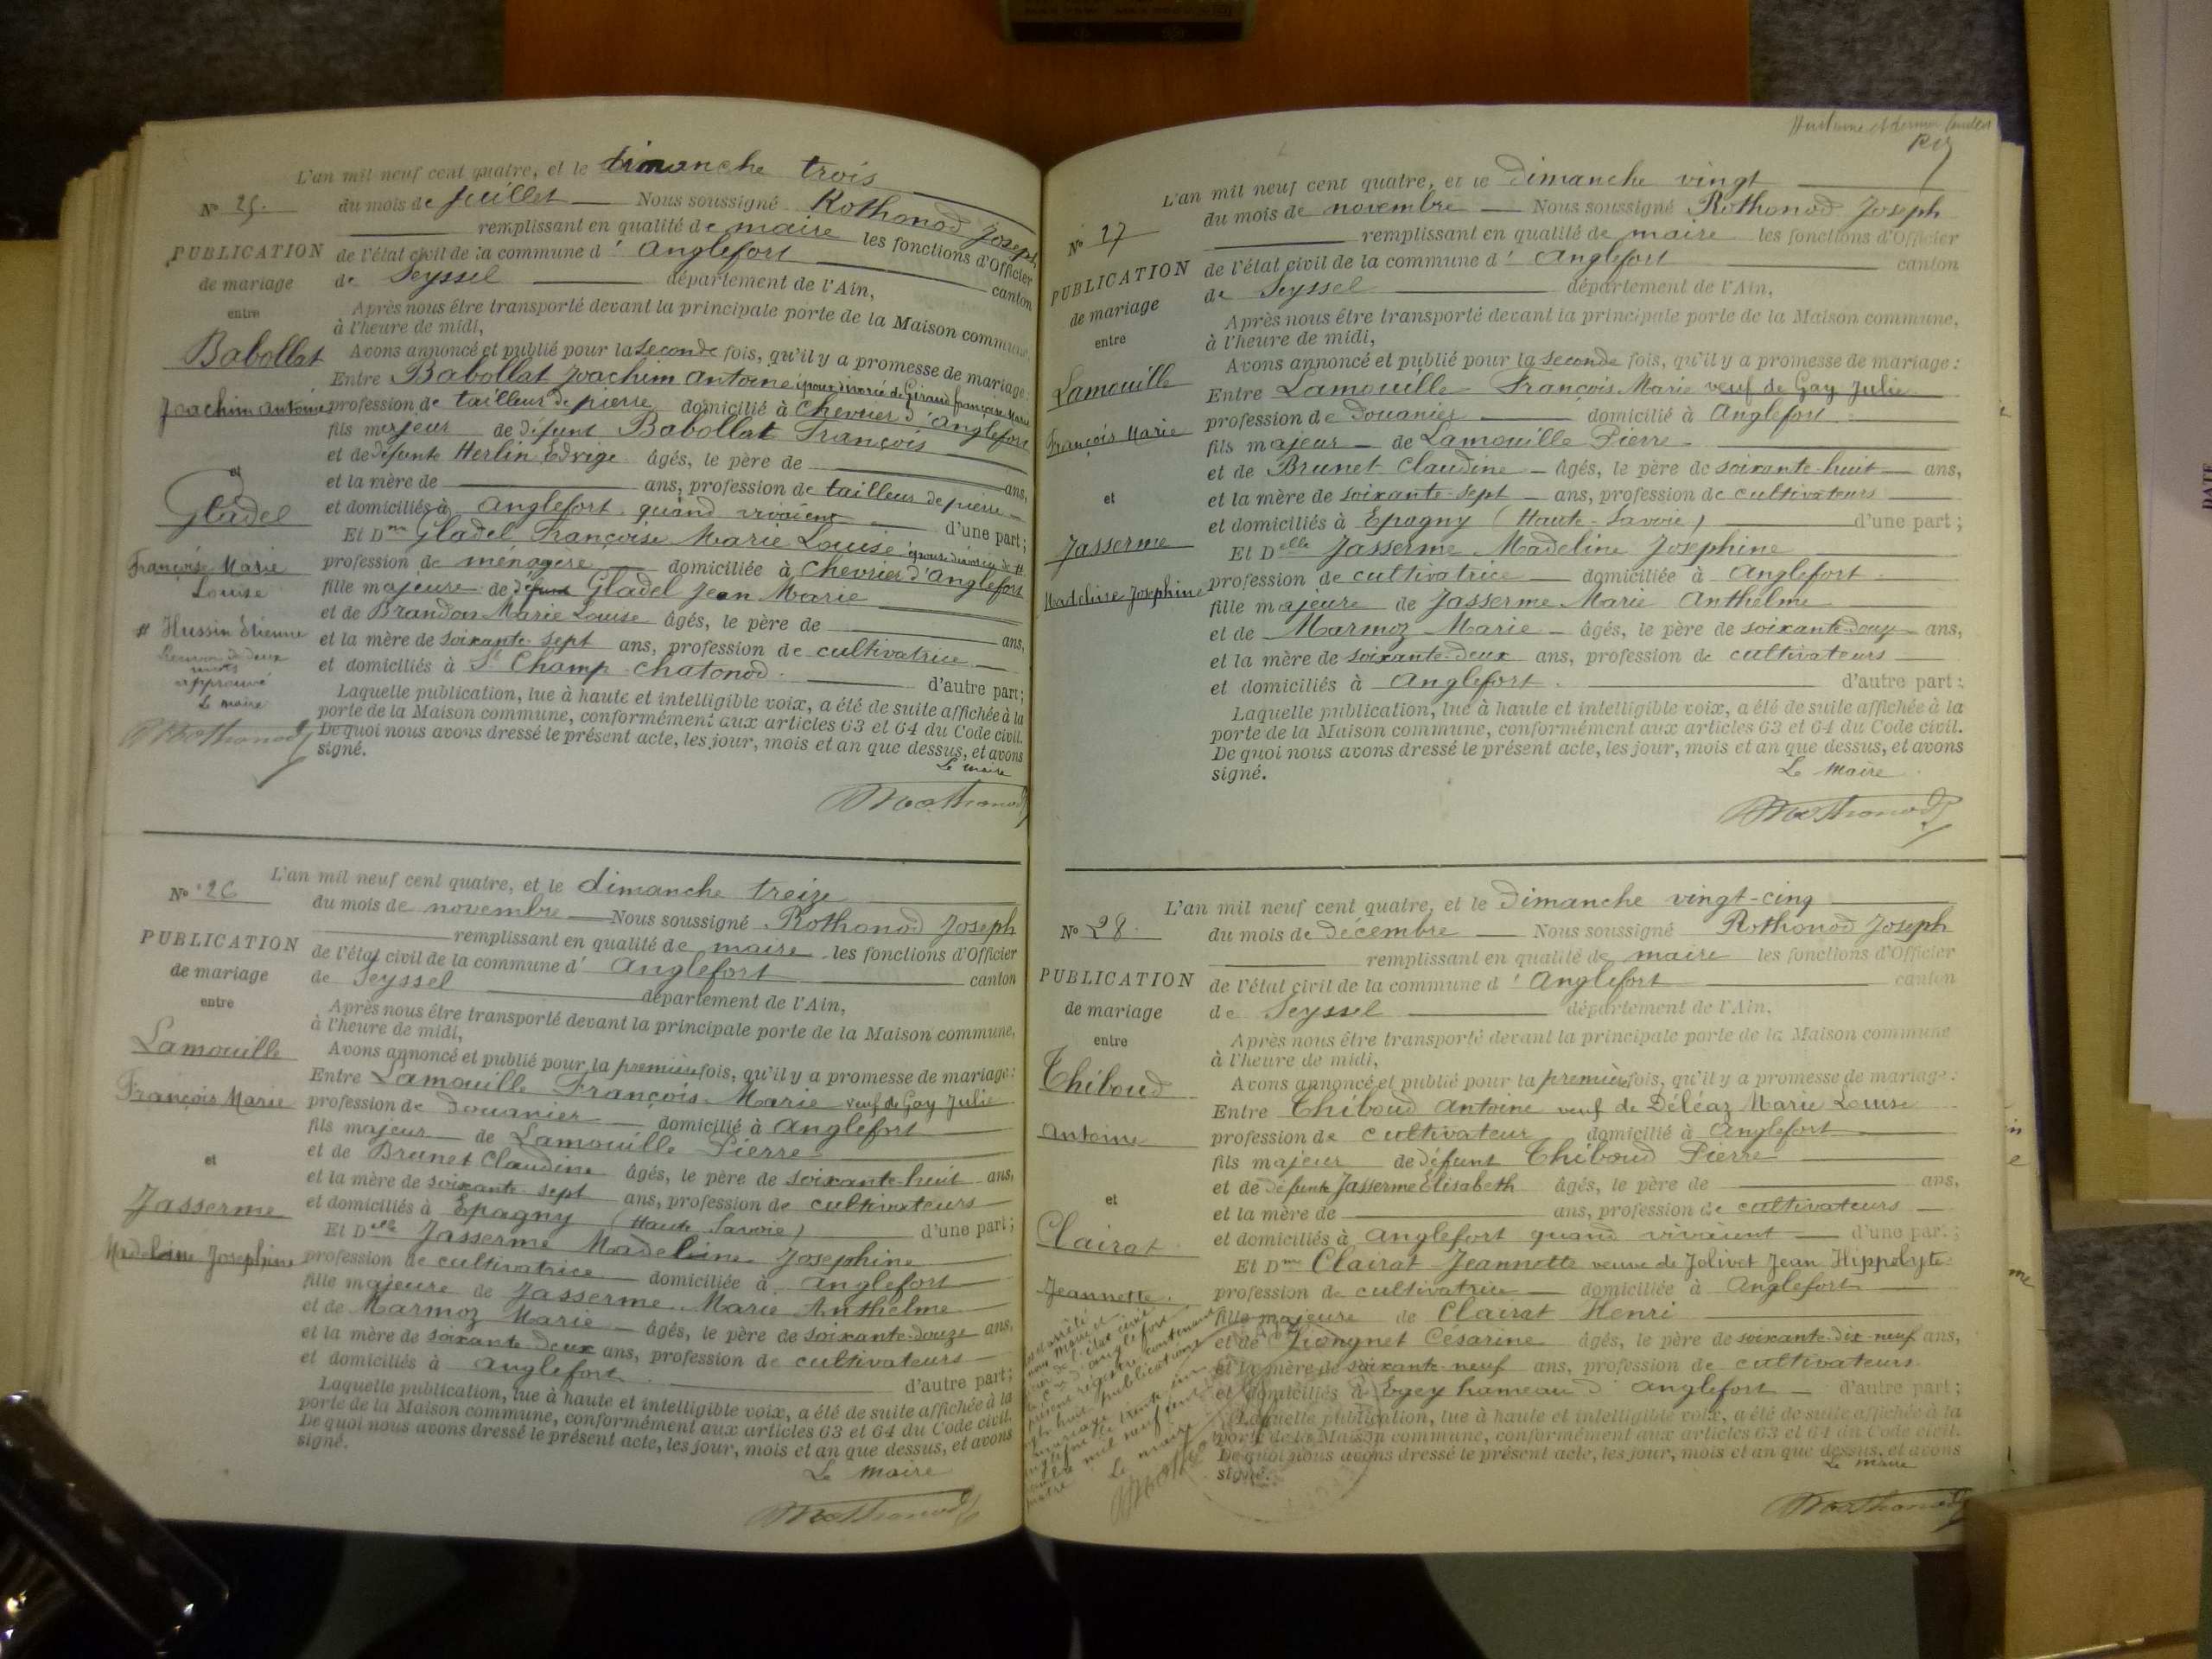 L'an mil neuf cent quatre, et le dimanche trois
N° 25. du mois de Juillet Nous soussigné Rothonod Joseph
remplissant en qualité de maire les fonctions d'Officier
PUBLICATION
de mariage
entre
Babollat
Joachim Antoine
et
Gladel
Françoise Marie
Louise
# Hussin Etienne
Renvoi de deux
mots
approuvé
Le maire
Rothonod
de l'état civil de la commune d' Anglefort canton
de Seyssel département de l'Ain,
Après nous être transporté devant la principale porte de la Maison commune,
à l'heure de midi,
Avons annoncé et publié pour la seconde fois, qu'il y a promesse de mariage :
Entre Babollat Joachim Antoine époux divorcé de Giraud Françoise Marie
profession de tailleur de pierre domicilié à Chevrier d'Anglefort
fils majeur de défunt Babollat François
et de défunte Herlin Edvige âgés, le père de ans,
et la mère de ans, profession de tailleur de pierre
et domiciliés à Anglefort quand vivaient d'une part ;
Et Dme Gladel Françoise Marie Louise épouse divorcée de #
profession de ménagère domiciliée à Chevrier d'Anglefort
fille majeure de défunt Gladel Jean Marie
et de Brandon Marie Louise âgés, le père de ans,
et la mère de soixante-sept ans, profession de cultivatrice
et domiciliés à St Champ-Chatonod. d'autre part ;
Laquelle publication, lue à haute et intelligible voix, a été de suite affichée à la
porte de la Maison commune, conformément aux articles 63 et 64 du Code civil.
De quoi nous avons dressé le présent acte, les jour, mois et an que dessus, et avons
signé.
Le maire
Rothonod
L'an mil neuf cent quatre, et le dimanche treize
N° 26 du mois de novembre Nous soussigné Rothonod Joseph
remplissant en qualité de maire les fonctions d'Officier
PUBLICATION
de mariage
entre
Lamouille
François Marie
et
Jasserme
Madeleine Josephine
de l'état civil de la commune d' Anglefort canton
de Seyssel département de l'Ain,
Après nous être transporté devant la principale porte de la Maison commune,
à l'heure de midi,
Avons annoncé et publié pour la première fois, qu'il y a promesse de mariage :
Entre Lamouille François-Marie veuf de Gay Julie
profession de douanier domicilié à Anglefort
fils majeur de Lamouille Pierre
et de Brunet Claudine âgés, le père de soixante-huit ans,
et la mère de soixante-sept ans, profession de cultivateurs
et domiciliés à Epagny (Haute-Savoie) d'une part ;
Et Delle Jasserme Madeleine Josephine
profession de cultivatrice domiciliée à Anglefort
fille majeure de Jasserme Marie Anthelme
et de Marmoz Marie âgés, le père de soixante-douze ans,
et la mère de soixante-deux ans, profession de cultivateurs
et domiciliés à Anglefort. d'autre part ;
Laquelle publication, lue à haute et intelligible voix, a été de suite affichée à la
porte de la Maison commune, conformément aux articles 63 et 64 du Code civil.
De quoi nous avons dressé le présent acte, les jour, mois et an que dessus, et avons
signé.
Le maire
Rothonod
Huitième et dernier feuillet
L'an mil neuf cent quatre, et le dimanche vingt
N° 27 du mois de novembre Nous soussigné Rothonod Joseph
remplissant en qualité de maire les fonctions d'Officier
PUBLICATION
de mariage
entre
Lamouille
François Marie
et
Jasserme
Madeleine Josephine
de l'état civil de la commune d' Anglefort canton
de Seyssel département de l'Ain,
Après nous être transporté devant la principale porte de la Maison commune,
à l'heure de midi,
Avons annoncé et publié pour la seconde fois, qu'il y a promesse de mariage :
Entre Lamouille François-Marie veuf de Gay Julie
profession de douanier domicilié à Anglefort
fils majeur de Lamouille Pierre
et de Brunet Claudine âgés, le père de soixante-huit ans,
et la mère de soixante-sept ans, profession de cultivateurs
et domiciliés à Epagny (Haute-Savoie) d'une part ;
Et Delle Jasserme Madeline Josephine
profession de cultivatrice domiciliée à Anglefort
fille majeure de Jasserme Marie Anthelme
et de Marmoz Marie âgés, le père de soixante-douze ans,
et la mère de soixante-deux ans, profession de cultivateurs
et domiciliés à Anglefort. d'autre part ;
Laquelle publication, lue à haute et intelligible voix, a été de suite affichée à la
porte de la Maison commune, conformément aux articles 63 et 64 du Code civil.
De quoi nous avons dressé le présent acte, les jour, mois et an que dessus, et avons
signé.
Le maire
Rothonod
L'an mil neuf cent quatre, et le dimanche vingt-cinq
N° 28. du mois de décembre Nous soussigné Rothonod Joseph
remplissant en qualité de maire les fonctions d'Officier
PUBLICATION
de mariage
entre
Thiboud
Antoine
et
Clairat
Jeannette.
de l'état civil de la commune d' Anglefort canton
de Seyssel département de l'Ain,
Après nous être transporté devant la principale porte de la Maison commune
à l'heure de midi,
Avons annoncé et publié pour la première fois, qu'il y a promesse de mariage :
Entre Thiboud Antoine veuf de Déléaz Marie Louise
profession de cultivateur domicilié à Anglefort
fils majeur de défunt Thiboud Pierre
et de défunte Jasserme Élisabeth âgés, le père de ans,
et la mère de ans, profession de cultivateurs
et domiciliés à Anglefort quand vivaient d'une part ;
Et Dme Clairat Jeannette veuve de Jolivet Jean Hippolyte
profession de cultivatrice domiciliée à Anglefort
fille majeure de Clairat Henri
et de Césarine âgés, le père de soixante-dix-neuf ans,
et la mère de soixante-neuf ans, profession de cultivateurs
et domiciliés à hameau d'Anglefort d'autre part ;
Laquelle publication, lue à haute et intelligible voix, a été de suite affichée à la
porte de la Maison commune, conformément aux articles 63 et 64 du Code civil.
De quoi nous avons dressé le présent acte, les jour, mois et an que dessus, et avons
signé.
Le maire
Rothonod
arrêté
nous maire
de l'état civil
d'Anglefort
présent registre contenant
huit publications
mariage
mil neuf cent
Le maire
DATE